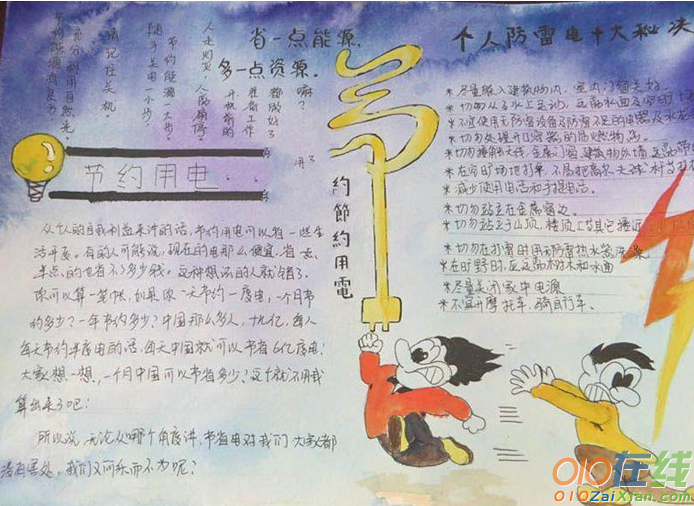 省一点能源,
多一点资源.
人走灯灭,人离屏停。
节约能源一大步。
随手关电一小步,
请记住关机。
充分利用自然光
开机前的
准备工作
都做好了
嘛?
节约用电
从个人的自我利益来讲的话,节约用电可以省一些生
活开支。有的人可能说,现在的电那么便宜,省一点、
多点的也省不了多少钱。这种想法的人就错了。
你可以算一笔帐,如果你一天节约一度电,一个月节
约多少?一年节约多少?中国那么多人,十几亿,每人
每天节约半度电的话,每天中国就可以节省6亿度电!
大家想一想,一个月中国可以节省多少?这个就不用我
算出来了吧!
所以说,无论从哪个角度讲,节省电对我们大家都
没有害处,我们又何乐而不为呢?
节
約節約用電
个人防雷电十大秘决
*尽量躲入建筑物内,室内门窗关好.
*切勿从事水上运动,远离水面及空旷
*不宜使用无防雷设备及防雷不足的电器及水
*切勿处理开口容器的易燃物品.
*切勿接触天线、金属门窗、建筑物外墙,远离带
*在空旷场地打伞,不易把高尔夫球
*减少使用电话和手提电话.
*切勿站立在金属窗边.
*切勿站立于山顶、楼顶上或其它接近
*切勿在打雷时用未防雷热水器洗澡
*在旷野时,应远离树木和水面
*尽量关闭家中电源
*不宜开摩托车、骑自行车.
010在线
010ZaiXian.com